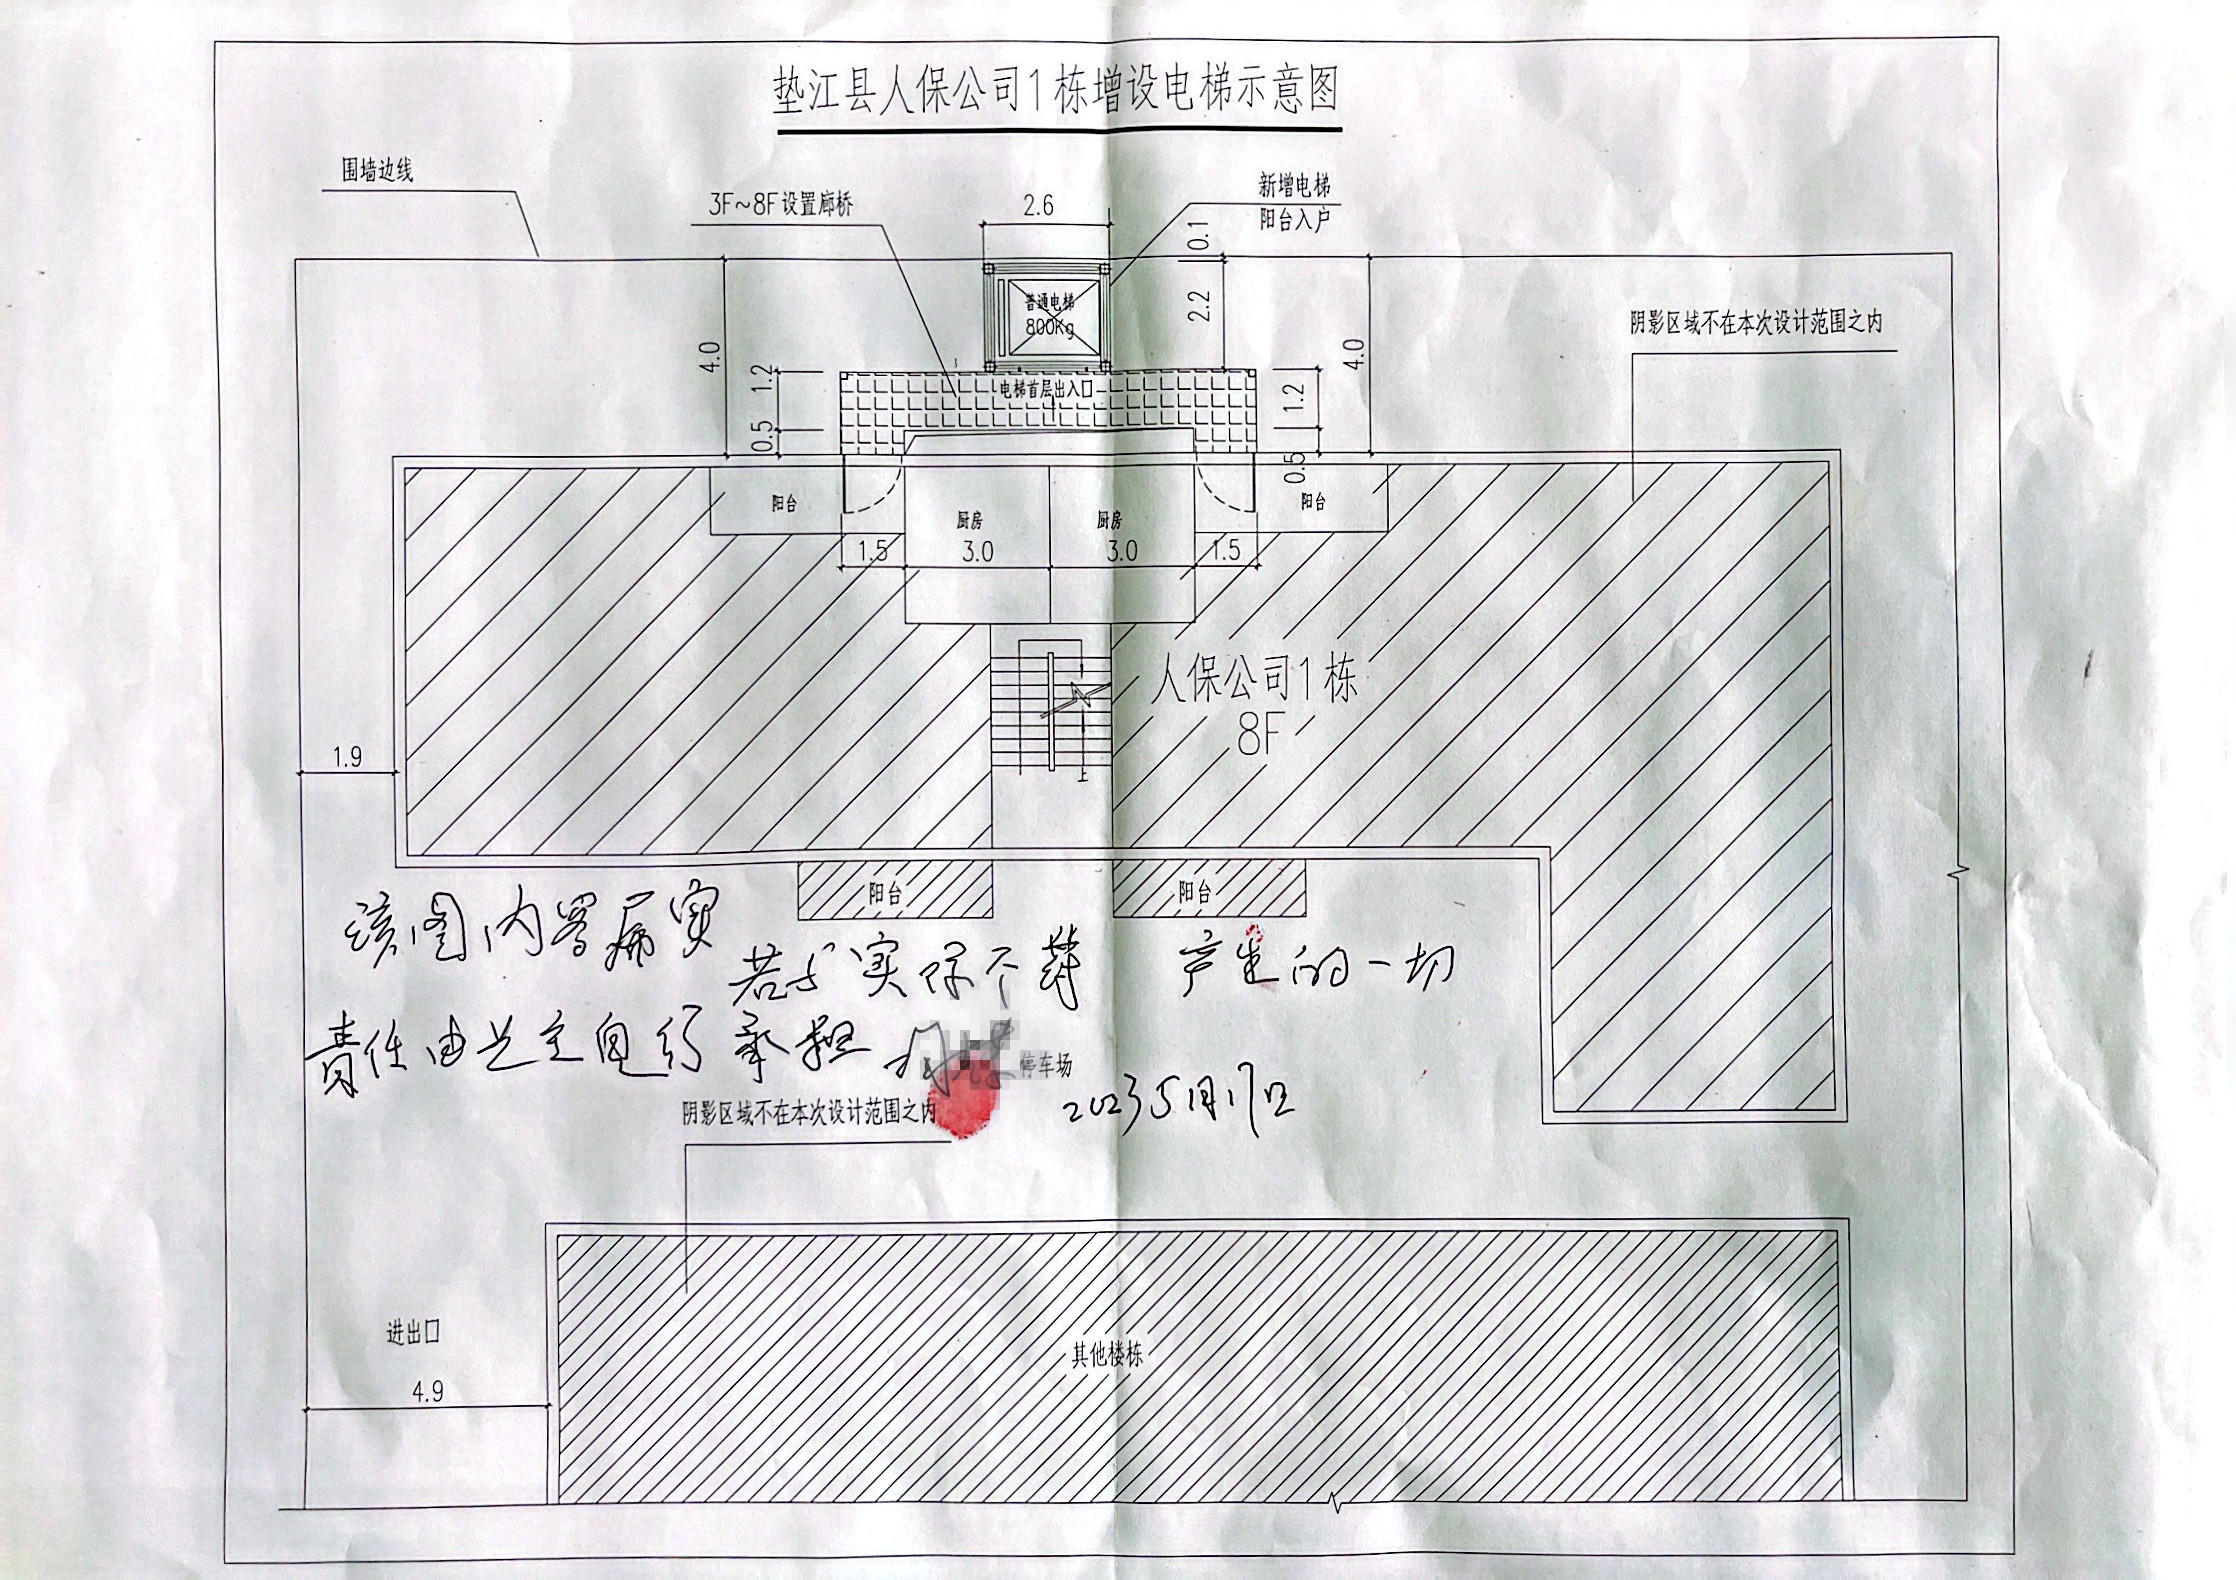 垫江县人保公司1栋增设电梯示意图
围墙边线
3F~8F设置廊桥
2.6
新增电梯
阳台入户
0.1
普通电梯
800Kg
2.2
4.0
4.0
阴影区域不在本次设计范围之内
1.2
电梯首层出入口
1.2
0.5
0.5
阳台
厨房
厨房
阳台
1.5
3.0
3.0
1.5
人保公司1栋
8F
1.9
上
阳台
阳台
该图内容属实
若与实际不符 产生的一切
责任由业主自行承担
停车场
2023 5月17日
阴影区域不在本次设计范围之内
进出口
其他楼栋
4.9